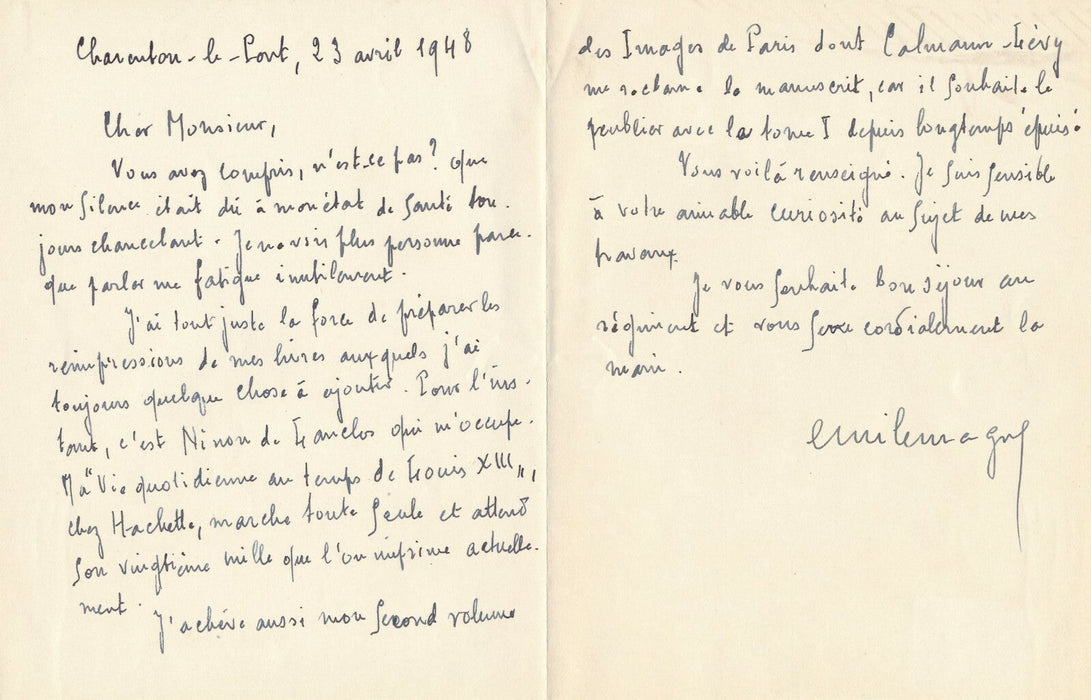 Charenton-le-Pont, 23 avril 1948
Cher Monsieur,
Vous avez compris, n'est-ce pas? que
mon silence était dû à mon état de santé tou-
jours chancelant. Je ne vois plus personne parce-
que parler me fatigue inutilement.
J'ai tout juste la force de préparer les
réimpressions de mes livres auxquels j'ai
toujours quelque chose à ajouter. Pour l'ins-
tant, c'est Ninon de Lanclos qui m'occupe.
Ma "Vie quotidienne au temps de Louis XIII",
chez Hachette, marche toute seule et attend
son vingtième mille que l'on imprime actuelle-
ment.
J'achève aussi mon second volume
des Images de Paris dont Calmann-Lévy
me réclame le manuscrit, car il souhaite le
publier avec le tome I depuis longtemps épuisé.
Vous voilà renseigné. Je suis sensible
à votre aimable curiosité au sujet de mes
travaux.
Je vous souhaite bon séjour au
régiment et vous serre cordialement la
main.
emilemagne